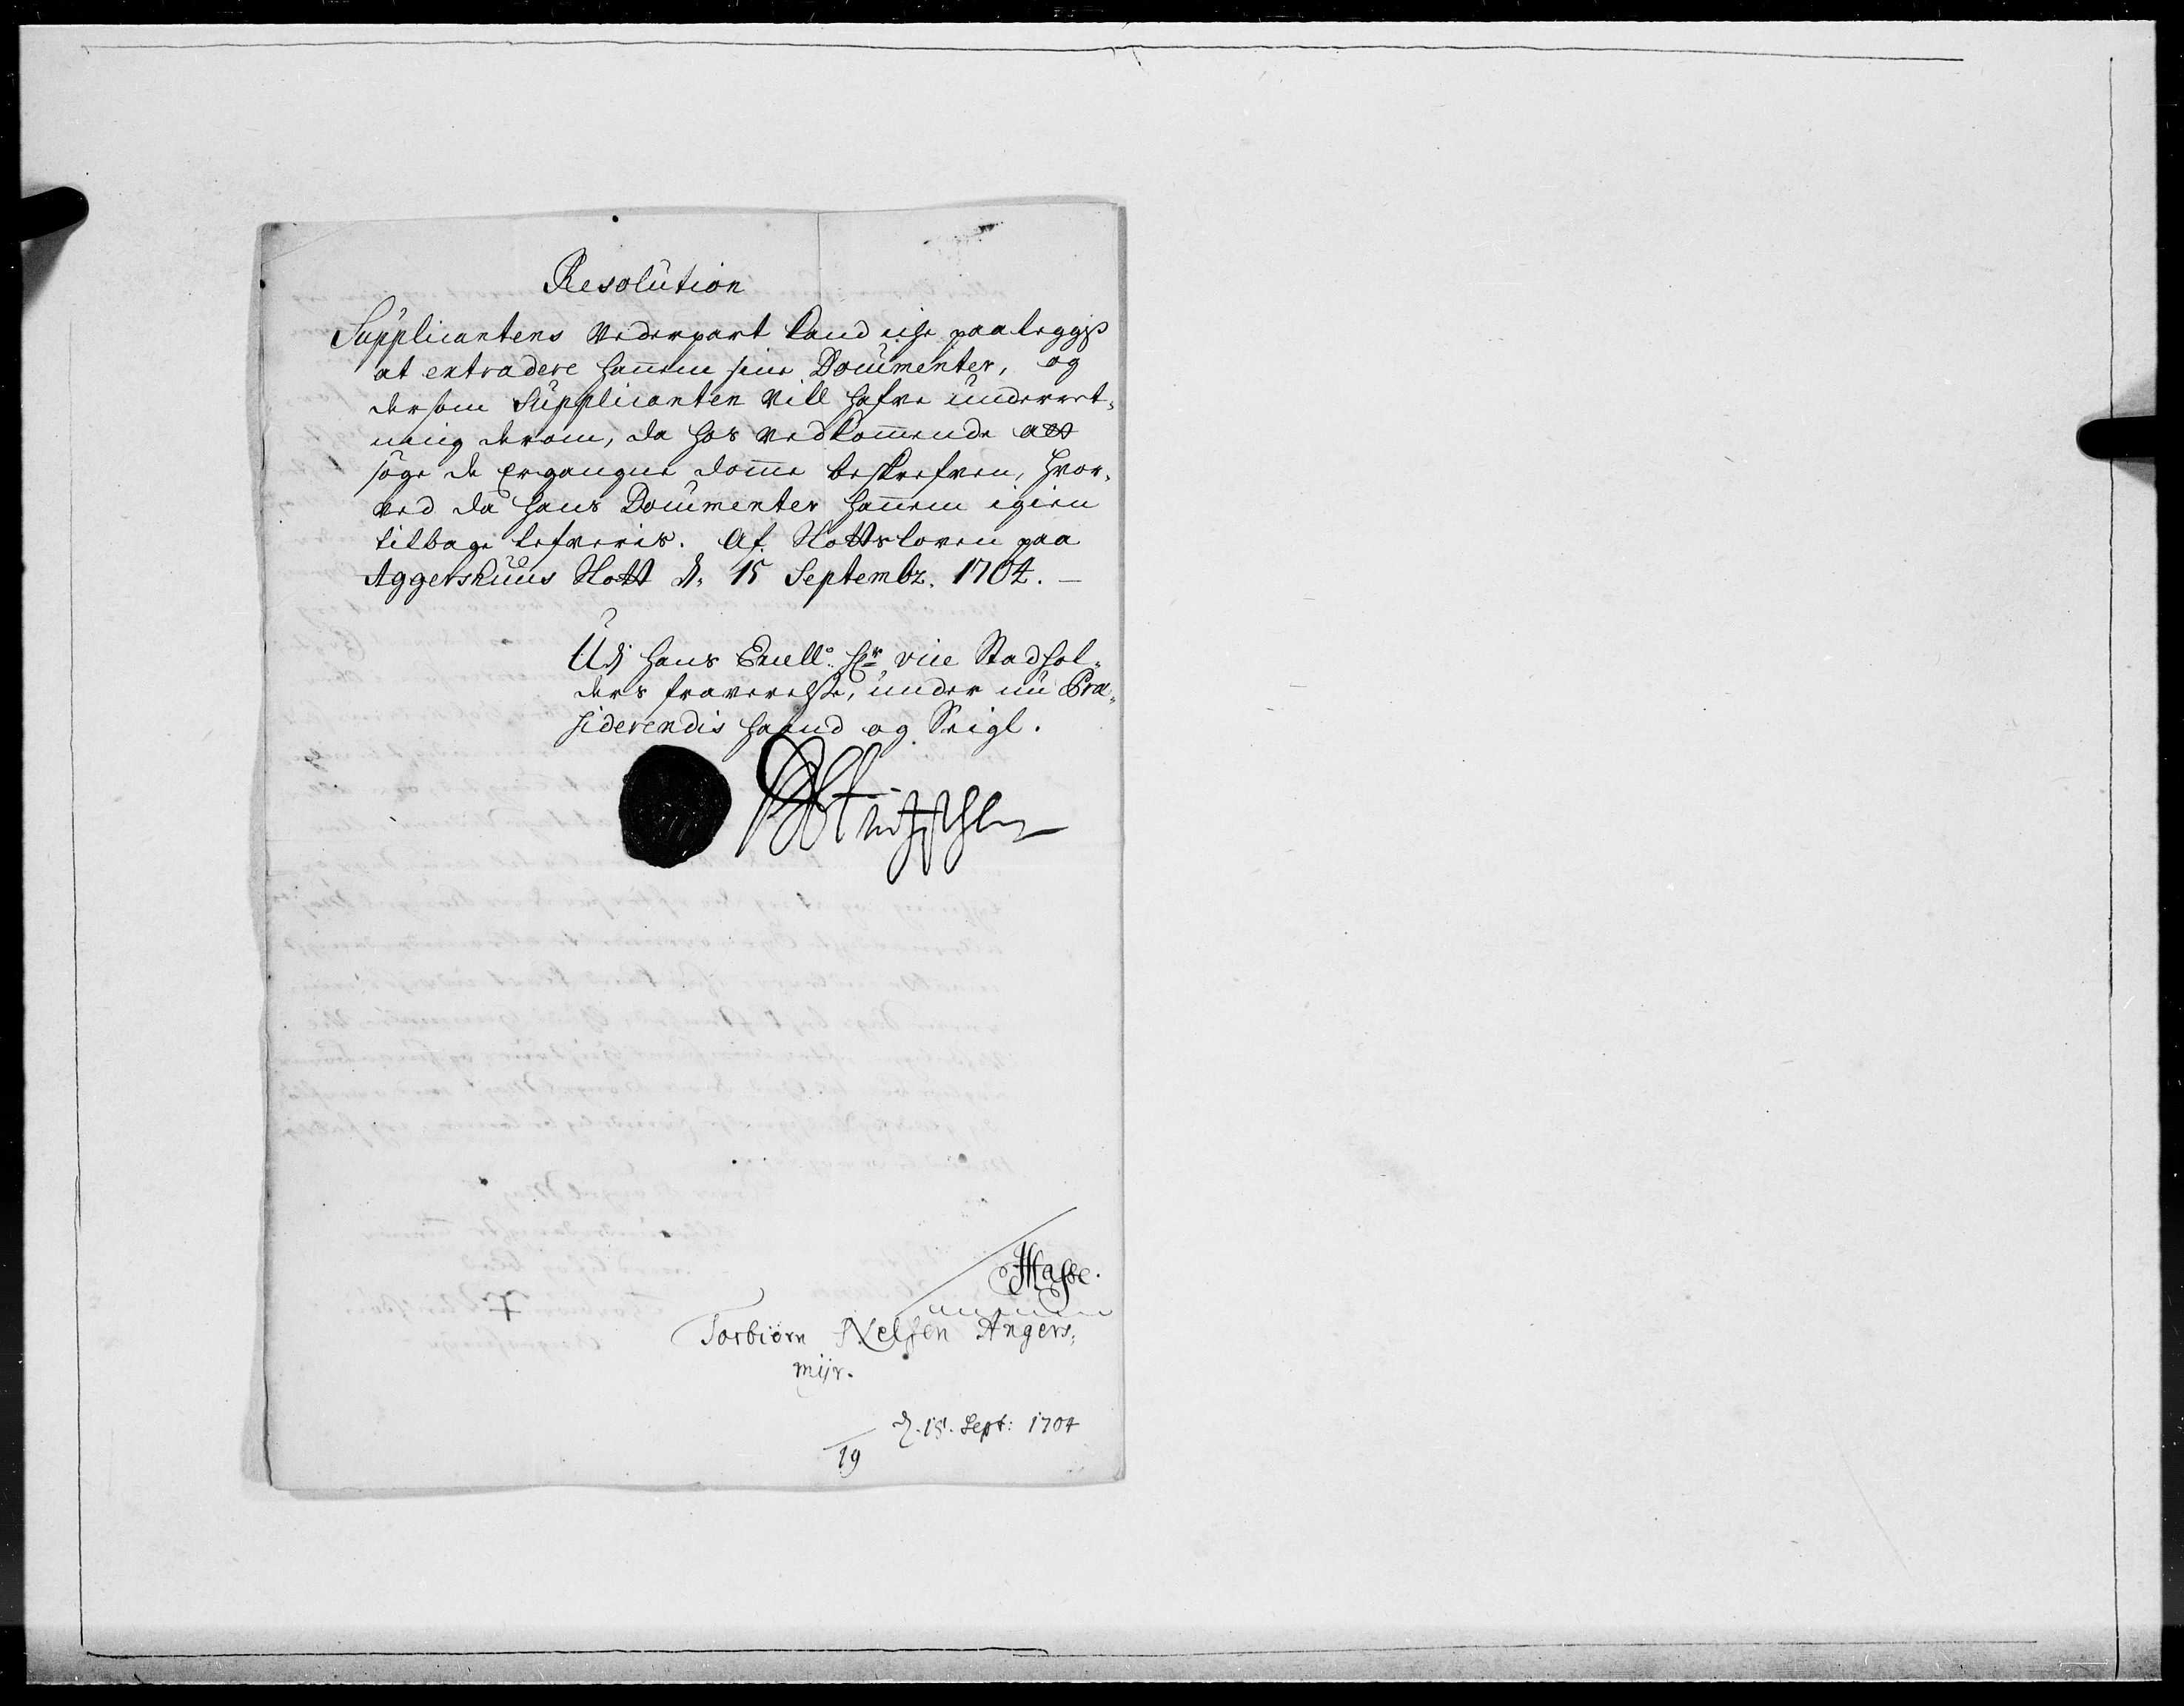 Resolution
Supplicantens Vederpart kand iche paaleggis
at extradere hannem sine Documenter, og
dersom Supplicanten vill hafve underret-
ning derom, da hos vedkommende att
søge de Ergangne domme beskrefven, hvor-
ved da hans Documenter hannem igien
tilbage lefveris. Af Slottsloven paa
Aggershuus Slott d. 15 Septembr. 1704.
Udj hans Excell: Hr vice Stadhol-
ders fraverelse, under nu Præ-
siderendis haand og Seigl.
Hasse.
Torbiørn Nelsen Angers-
mijr.
d. 15. Sept: 1704
19